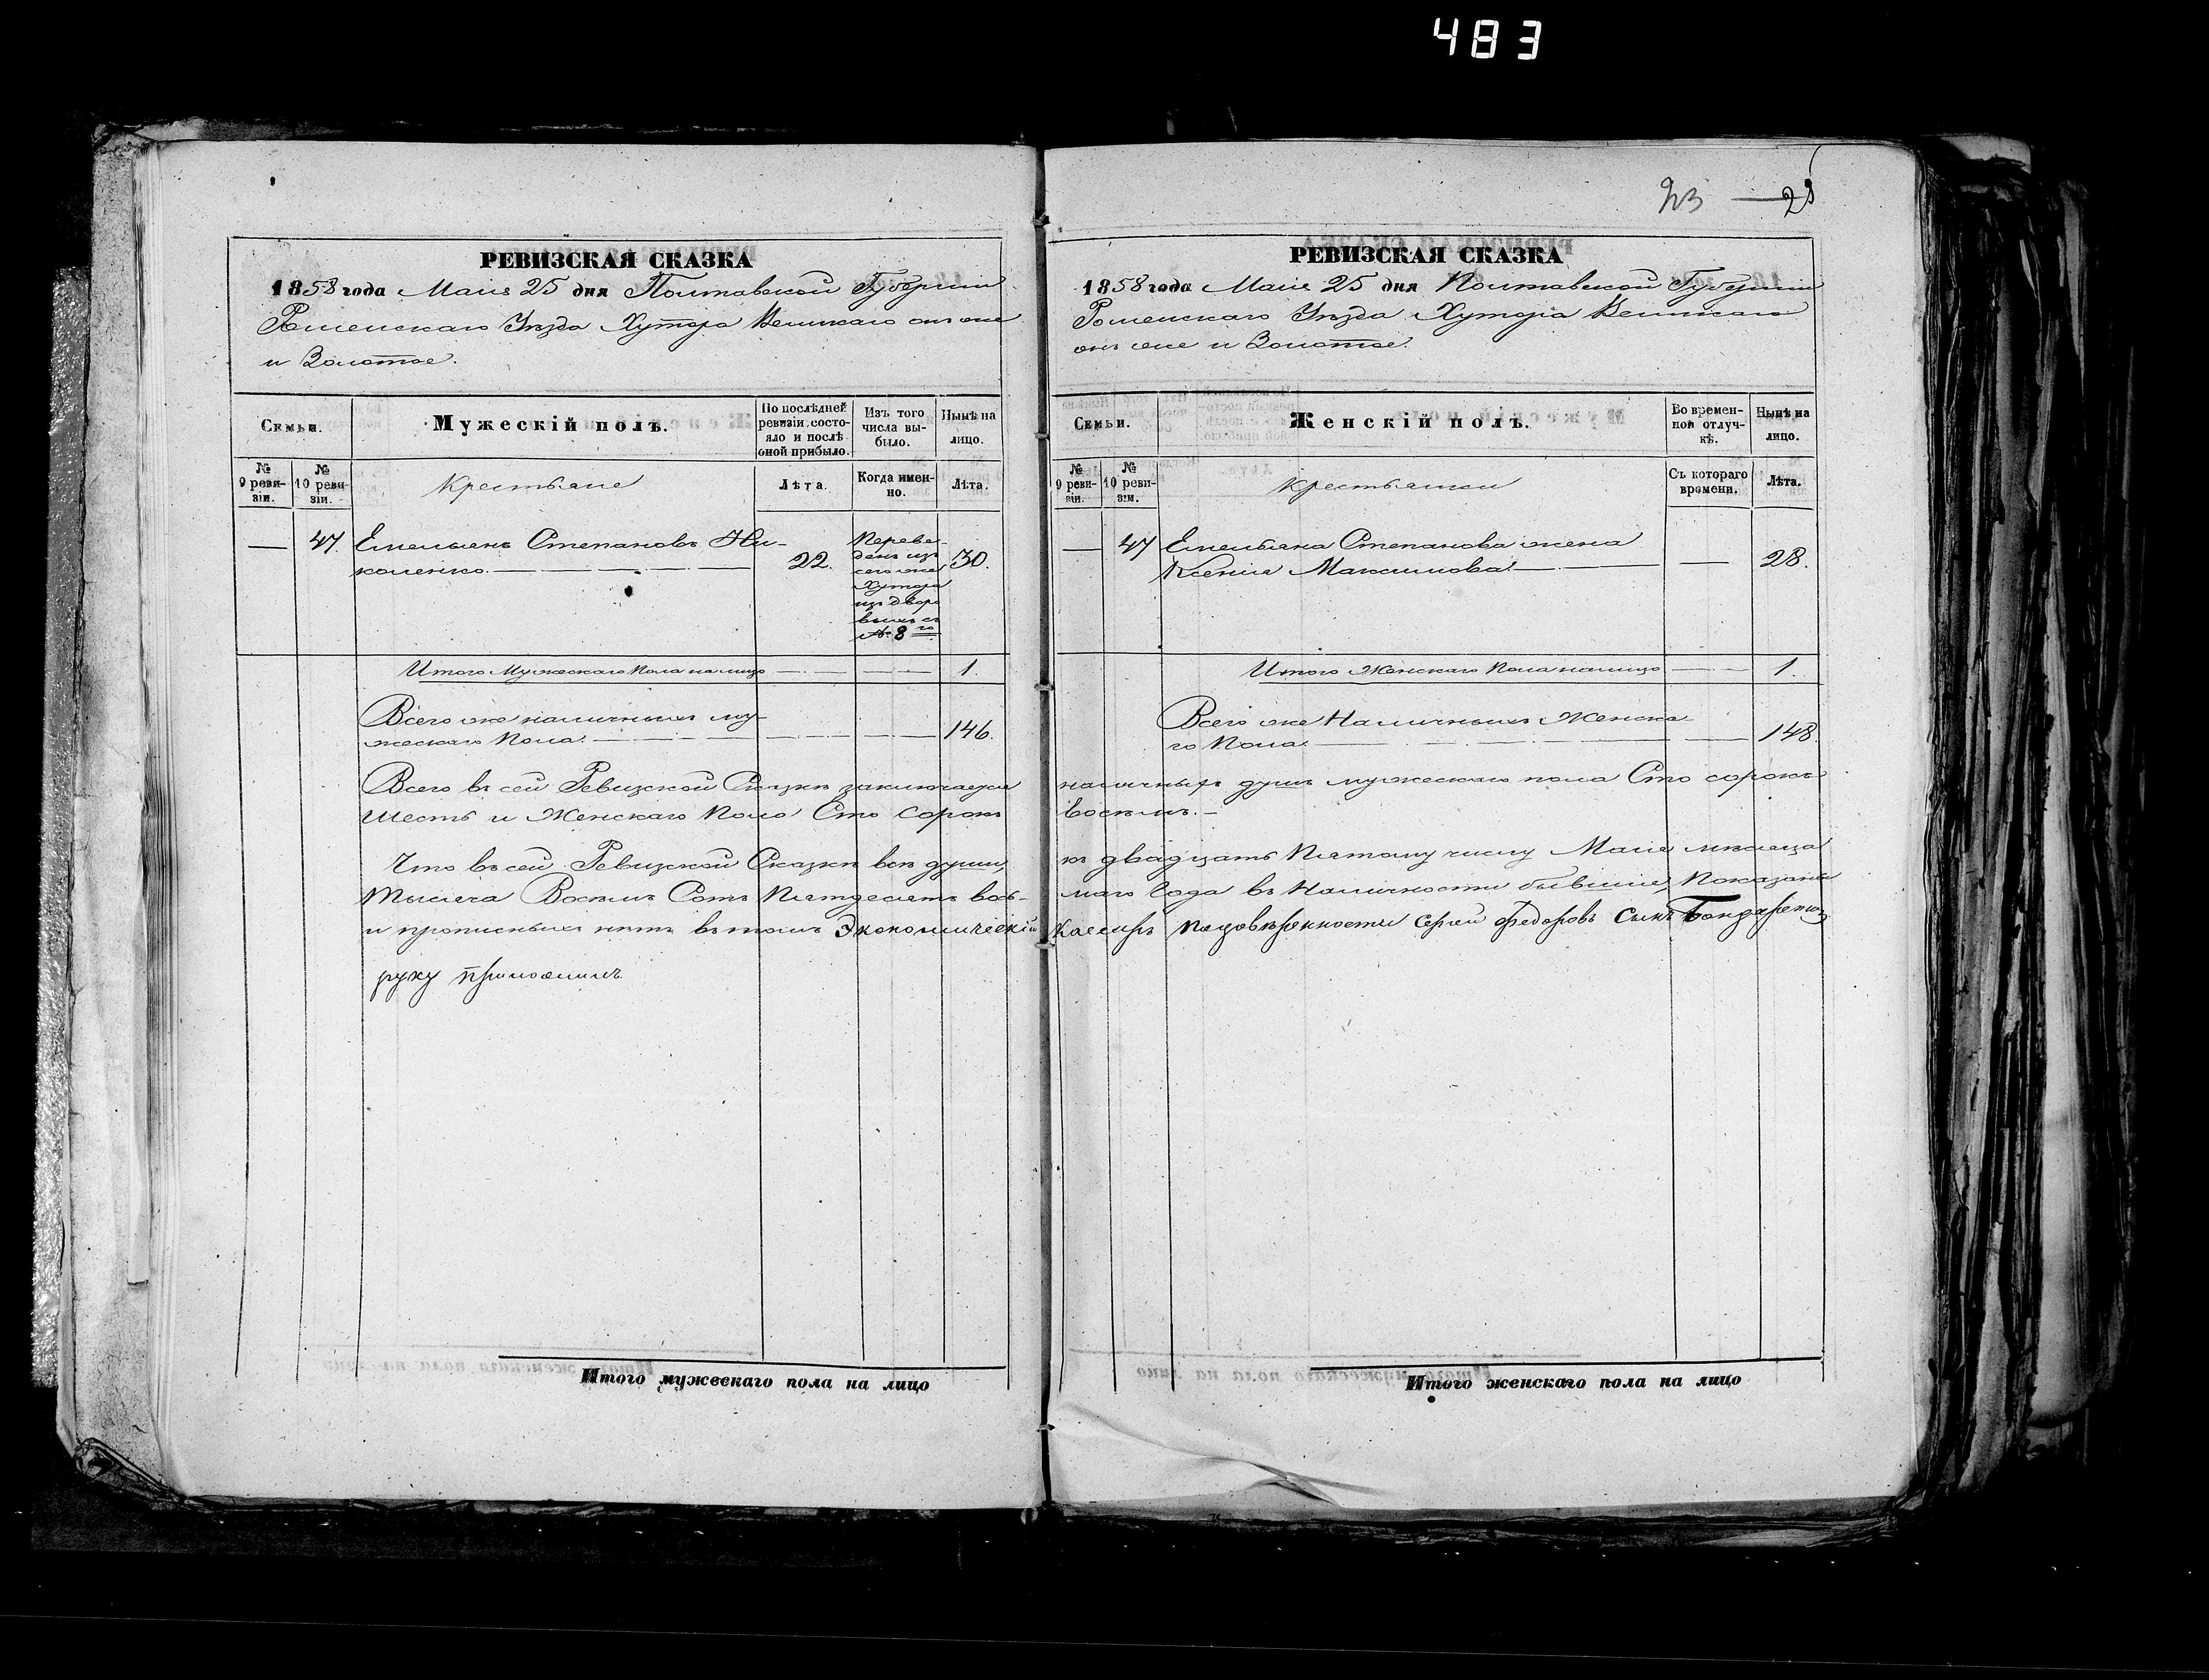 483
23 — 25
РЕВИЗСКАЯ СКАЗКА
1858 года Маия 25 дня Полтавской Губернии
Роменскаго Уѣзда Хутора Великаго онъ же
и Золотое.
Семьи.
Мужескій полъ.
По послѣдней ревизіи состояло и послѣ оной прибыло.
Изъ того числа выбыло.
Нынѣ на лицо.
№ 9 ревизіи.
№ 10 ревизіи.
Крестьяне
Лѣта.
Когда именно.
Лѣта.
— 47. Емельянъ Степановъ Ни-
коленко. 22. 30.
Переве-
денъ изъ
сего же
Хутора
изъ дворо
выхъ съ
№ 8го
Итого Мужескаго Пола на лицо 1.
Всего же наличныхъ му-
жескаго Пола. 146.
Всего въ сей Ревизской Сказкѣ заключается
Шесть и Женскаго Пола Сто Сорокъ
Что въ сей Ревизской Сказкѣ всѣ души,
Тысяча Восемь Сотъ Пятдесятъ вось-
и прописныхъ нѣтъ въ томъ Экономическій
руку приложилъ
Итого мужескаго пола на лицо
РЕВИЗСКАЯ СКАЗКА
1858 года Маия 25 дня Полтавской Губернии
Роменскаго Уѣзда Хутора Великаго
онъ же и Золотое.
Семьи.
Женскій полъ.
Во временной отлучкѣ.
Нынѣ на лицо.
№ 9 ревизіи.
№ 10 ревизіи.
Крестьянки
Съ котораго времени.
Лѣта.
— 47 Емельяна Степанова жена
Ксения Максимова — 28.
Итого Женскаго Пола налицо 1.
Всего же Наличныхъ Женска-
го Пола. 148.
наличныхъ душъ мужескаго пола Сто сорокъ
восемь. —
къ двадцать Пятому числу Маия мѣсяца
маго Года въ Наличности бывшие, Показаны
Кассиръ по довѣренности Сергей Федоровъ Сынъ Бондаренко
Итого женскаго пола на лицо